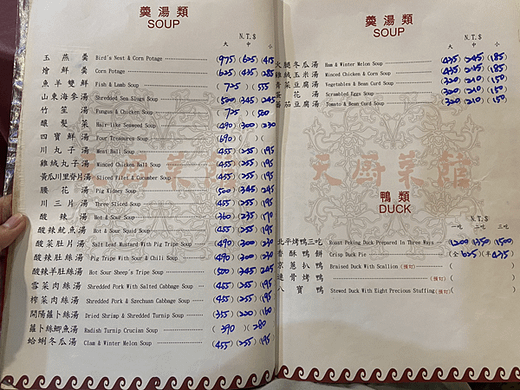 羹湯類
SOUP
N.T.$
大 中 小
玉燕羹 Bird's Nest & Corn Potage (975) (625) (415
燴鮮羹 Corn Potage (625) (435) (285
魚羊雙鮮 Fish & Lamb Soup (725) (555)
山東海參湯 Shredded Sea Slugs Soup (500) (345) (245
竹笙湯 Fungus & Chicken Soup (725) (500)
髮菜 Hair-like Seaweed Soup (490) (300) (230
四寶鮮湯 Four Treasure Soup (690)
川丸子湯 Meat Ball Soup (455) (255) (195
雞絨丸子湯 Minced Chicken Ball Soup (455) (255) (195
黃瓜川里脊片湯 Sliced Filet & Cucumber Soup (455) (255) (195
腰花湯 Pig Kidney Soup (500) (345) (245
川三片湯 Three Sliced Soup (455) (255) (195
酸辣湯 Hot & Sour Soup (360) (235) (170
酸辣魷魚湯 Hot & Sour Squid Soup (455) (255) (195
酸菜肚片湯 Salt Leaf Mustard With Pig Tripe Soup (490) (300) (230
酸辣肚絲湯 Pig Tripe With Sour & Chili Soup (490) (300) (230
酸辣羊肚絲湯 Hot Sour Sheep's Tripe Soup (500) (345) (245
雪菜肉絲湯 Shredded Pork With Salted Cabbage Soup (455) (255) (195
榨菜肉絲湯 Shredded Pork & Szechuan Cabbage Soup (455) (255) (195
開陽蘿卜絲湯 Dried Shrimp & Shredded Turnip Soup (355) (220) (160
蘿卜絲鯽魚湯 Radish Turnip Crucian Soup (390) (280
蛤蜊冬瓜湯 Clam & Winter Melon Soup (455) (255) (195
羹湯類
SOUP
N.T.$
大 中 小
腿冬瓜湯 Ham & Winter Melon Soup (435) (245) (185)
絨玉米湯 Minced Chicken & Corn Soup (435) (245) (185)
菜豆腐湯 Vegetables & Bean Curd Soup (320) (210) (150)
花湯 Scrambled Eggs Soup (320) (210) (150)
茄豆腐湯 Tomato & Bean Curd Soup (320) (210) (150)
天廚菜館
鴨類
DUCK
N.T.$
一吃 二吃 三吃
北平烤鴨三吃 Roast Peking Duck Prepared In Three Ways (1200) (1350) (1500)
香酥鴨餅 Crisp Duck Pie (全825) (半435)
京蔥扒鴨 Braised Duck With Scallion (預訂)
烤鴨 (預訂)
八寶鴨 Stewed Duck With Eight Precious Stuffing (預訂)